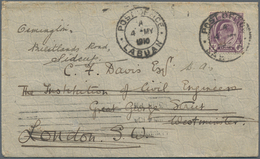 Osmington,
Road,
Sidcup
POST
A
4 MY
1910
LABUAN
POST
C. F. Davis Esq.
The Institution of Civil Engineers
Great George Street
Westminster
London. S.W.